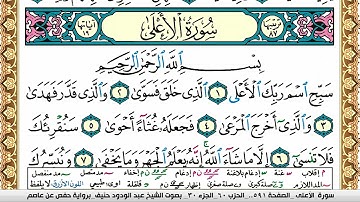 سُورَةُ الأَعْلَى
بِسْمِ اللَّهِ الرَّحْمَٰنِ الرَّحِيمِ
سَبِّحِ اسْمَ رَبِّكَ الْأَعْلَى ١ الَّذِي خَلَقَ فَسَوَّىٰ ٢ وَالَّذِي قَدَّرَ فَهَدَىٰ
٣ وَالَّذِي أَخْرَجَ الْمَرْعَىٰ ٤ فَجَعَلَهُ غُثَاءً أَحْوَىٰ ٥ سَنُقْرِئُكَ
فَلَا تَنسَىٰ ٦ إِلَّا مَا شَاءَ اللَّهُ إِنَّهُ يَعْلَمُ الْجَهْرَ وَمَا يَخْفَىٰ ٧ وَنُيَسِّرُكَ
سورة الأعلى الصفحة ٥٩١ الحزب ٦٠ الجزء ٣٠ بصوت الشيخ عبد الودود حنيف برواية حفص عن عاصم